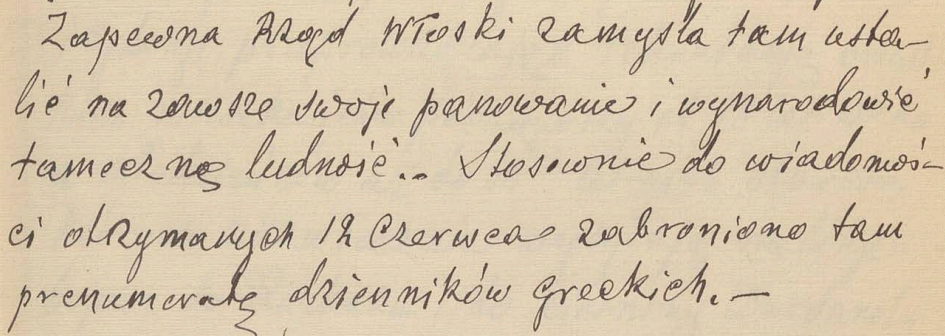 Zapewna Rząd Włoski zamyśla tam usta-
lić na zawsze swoje panowanie i wynarodowić
tameczną ludność.. Stosownie do wiadomoś-
ci otrzymanych 12 Czerwca zabroniono tam
prenumeratę dzienników greckich.—